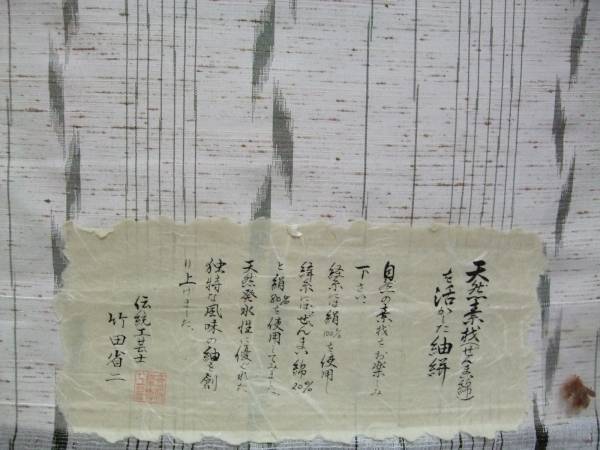 天然素材(ぜんまい綿)
を活かした紬絣
自然の素材をお楽しみ
下さい。
経糸は絹100%を使用し
緯糸はぜんまい綿20%
と絹80%を使用してみました。
天然発水性に優ぐれた
独特な風味の紬を創
り上げました。
伝統工芸士
竹田省二